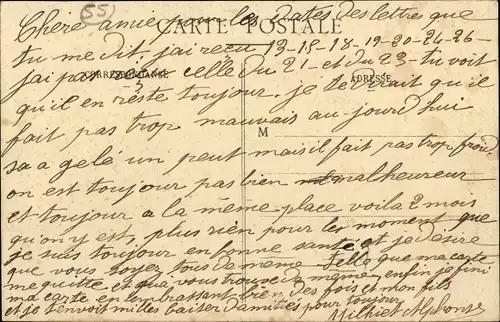 55
Chère amie pour les dates des lettres que
CARTE POSTALE
tu me dit j'ai reçu 13-15-18-19-20-24-26-
j'ai pas reçu celle du 21 et du 23- tu voit
CORRESPONDANCE
ADRESSE
qu'il en reste toujour. je te dirait qu'il
fait pas trop mauvais au-jourd'hui
M
sa a gelé un peut mais il fait pas trop froid
on est toujour pas bien malheureux
et toujour a la même place voila 2 mois
qu'on y est, plus rien pour les moment que
je suis toujour en bonne santé et je désire
que vous soyez tous de même telle que ma carte
me quitte et que vous trouve de même enfin je fini
ma carte en tembrassant bien des fois et mon fils
et je tenvoit milles baiser d'amitiés pour toujour
Milhiet Alphonse